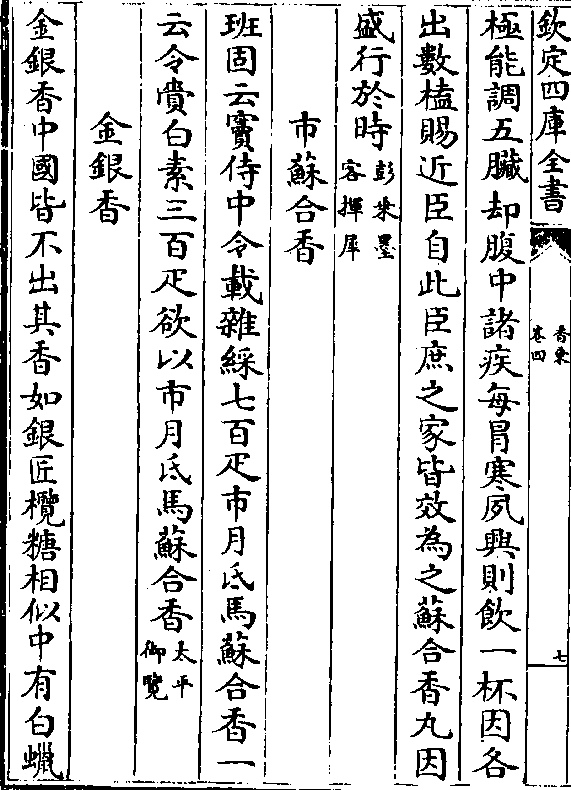 欽定四庫全書
香乘
卷四
七
極能調五臟却腹中諸疾每冐寒夙興則飲一杯因各
出數榼賜近臣自此臣庶之家皆效為之蘇合香丸因
盛行於時彭乘墨
客揮犀
市蘇合香
班固云竇侍中令載雜綵七百疋市月氐馬蘇合香一
云令賫白素三百疋欲以市月氐馬蘇合香太平
御覽
金銀香
金銀香中國皆不出其香如銀匠欖糖相似中有白蠟